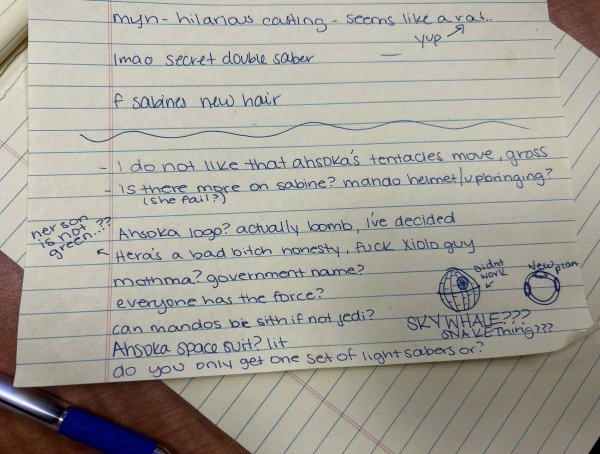 myn - hilarious casting - seems like a rat..
yup
lmao secret double saber
f sabines new hair
- I do not like that ahsoka's tentacles move, gross
- Is there more on sabine? mando helmet/upbringing?
(she fail?)
her son is not green..??
Ahsoka logo? actually bomb, i've decided
Hera's a bad bitch honestly, fuck Xiolo guy
mothma? government name?
didnt work
new plan
everyone has the force?
can mandos be sith if not jedi?
SKY WHALE???
SNAKE Thing???
Ahsoka space suit? lit
do you only get one set of lightsabers or?